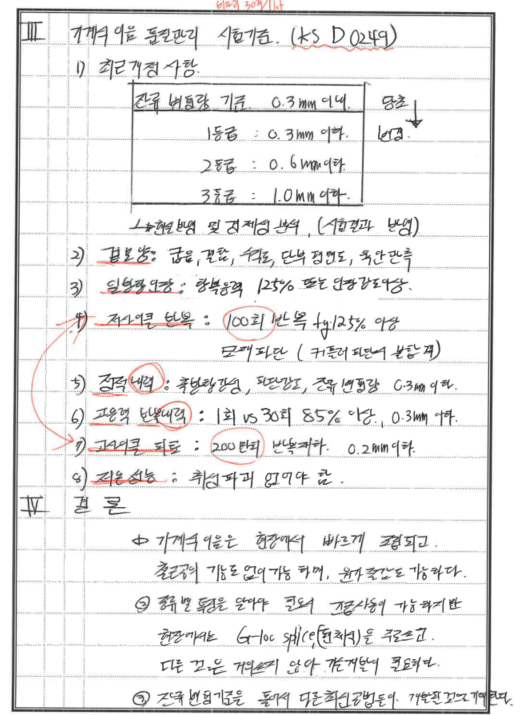 III 기계식 이음 품질관리 시험기준. (KS D 0249)
1) 최근 개정 사항.
잔류 변형량 기준. 0.3mm 이내. 당초
1등급 : 0.3mm 이하. 변경.
2등급 : 0.6mm 이하.
3등급 : 1.0mm 이하.
및 경제성 분석, (시험결과 반영)
2) 겉모양: 굽음, 단부 육안 관측
3) 일방향 인장 : 항복응력 125% 또는 인장강도 이상.
4) 저사이클 반복 : 100회 반복 fy 125% 이상
모재파단 (커플러 파단시 불합격)
5) 정적내력 : 축방향 강성, 파단강도, 잔류변형량 0.3mm 이하.
6) 고응력 반복내력 : 1회 vs 30회 85% 이상, 0.3mm 이하.
7) 고사이클 피로 : 200만회 반복하하. 0.2mm 이하.
8) 저온성능 : 취성파괴 없어야 함.
IV 결론
① 기계식 이음은 현장에서 빠르게 조립되고.
철근공의 기능도 없이 가능하며, 원가절감도 가능하다.
② 종류별 특징을 알아야 현장의 사용이 가능하지만
현장에서는 G-loc splice(편체식)을 주로쓰고.
다른 것은 거의쓰지 않아 기술개발이 필요하다.
③ 잔류변형기준을 통하여 다른 최신공법들이 개발될 것으로 기대된다.